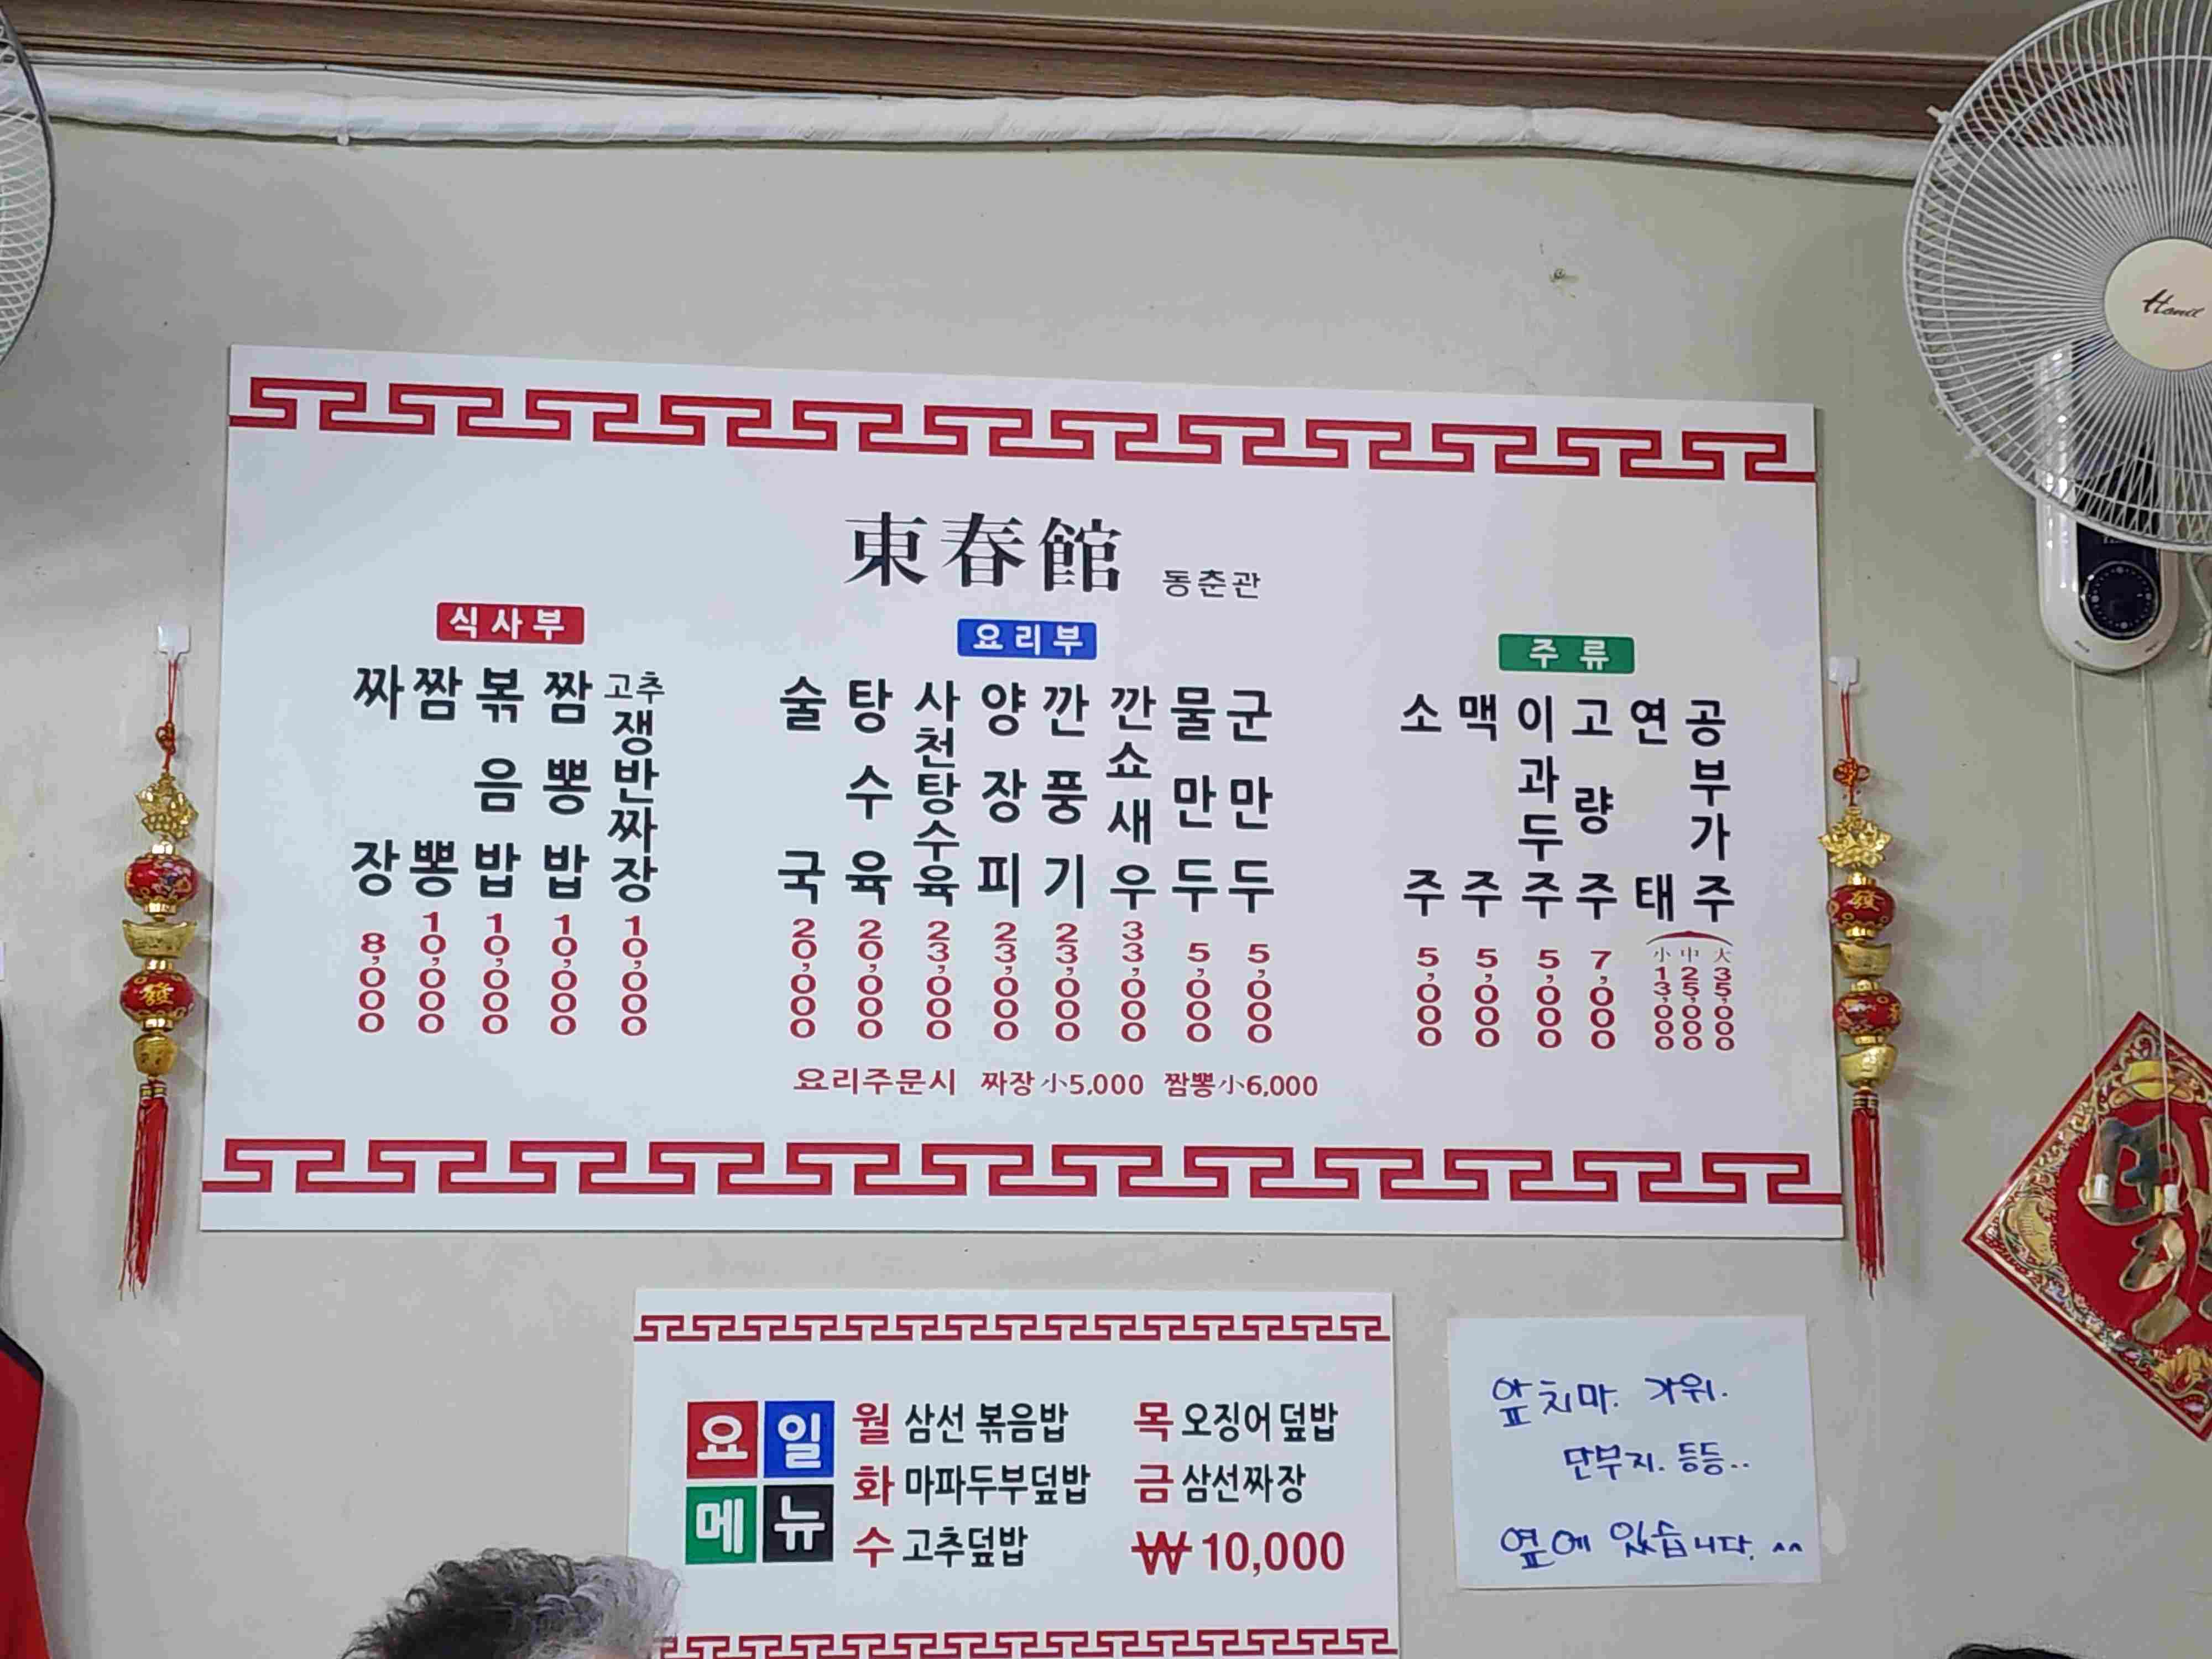 東春館 동춘관
식사부
짜장 8,000
짬뽕 10,000
볶음밥 10,000
짬뽕밥 10,000
고추쟁반짜장 10,000
요리부
술국 20,000
탕수육 20,000
사천탕수육 23,000
양장피 23,000
깐풍기 23,000
깐쇼새우 33,000
물만두 5,000
군만두 5,000
주류
소주 5,000
맥주 5,000
이과두주 5,000
고량주 7,000
연태
공부가주
小 13,000
中 25,000
大 35,000
요리주문시 짜장小5,000 짬뽕小6,000
요일메뉴
월 삼선 볶음밥
화 마파두부덮밥
수 고추덮밥
목 오징어덮밥
금 삼선짜장
₩10,000
앞치마. 가위.
단무지. 등등..
옆에 있습니다. ^^
Hanil
發
發
發